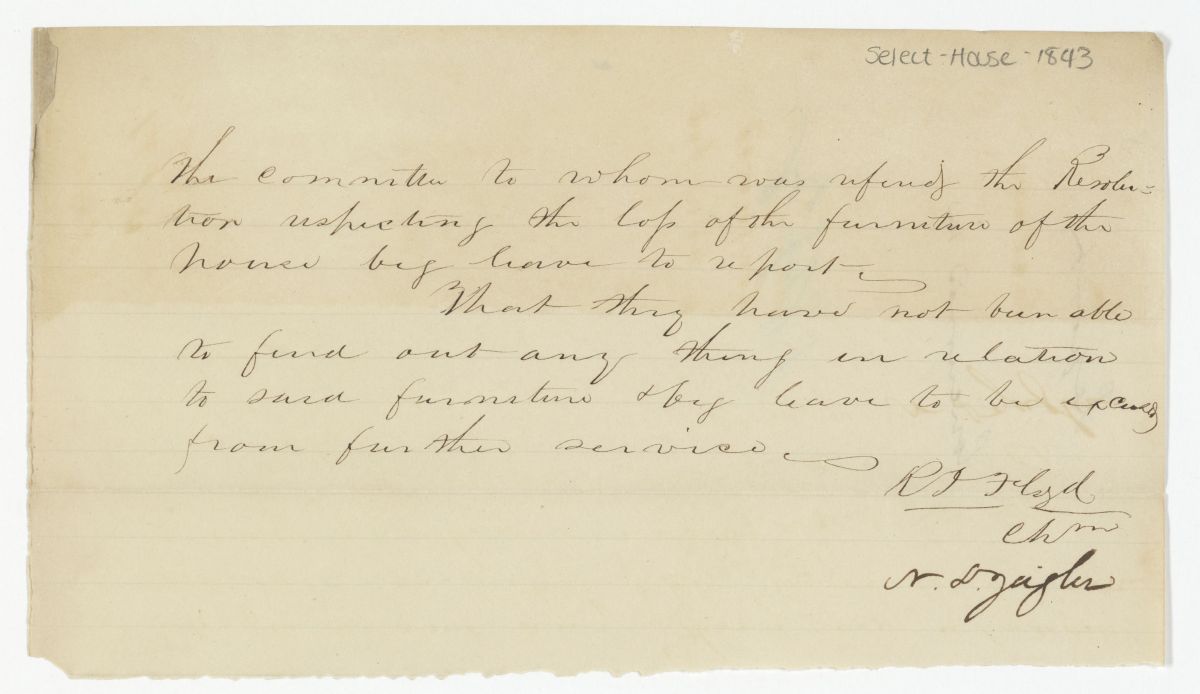 Select-House-1843
The committee to whom was referred the Resolu=
tion respecting the loss of the furniture of the
house beg leave to report
That they have not been able
to find out any thing in relation
to said furniture & beg leave to be excused
from further service
R J Floyd
Chm
N. D. Zeigler